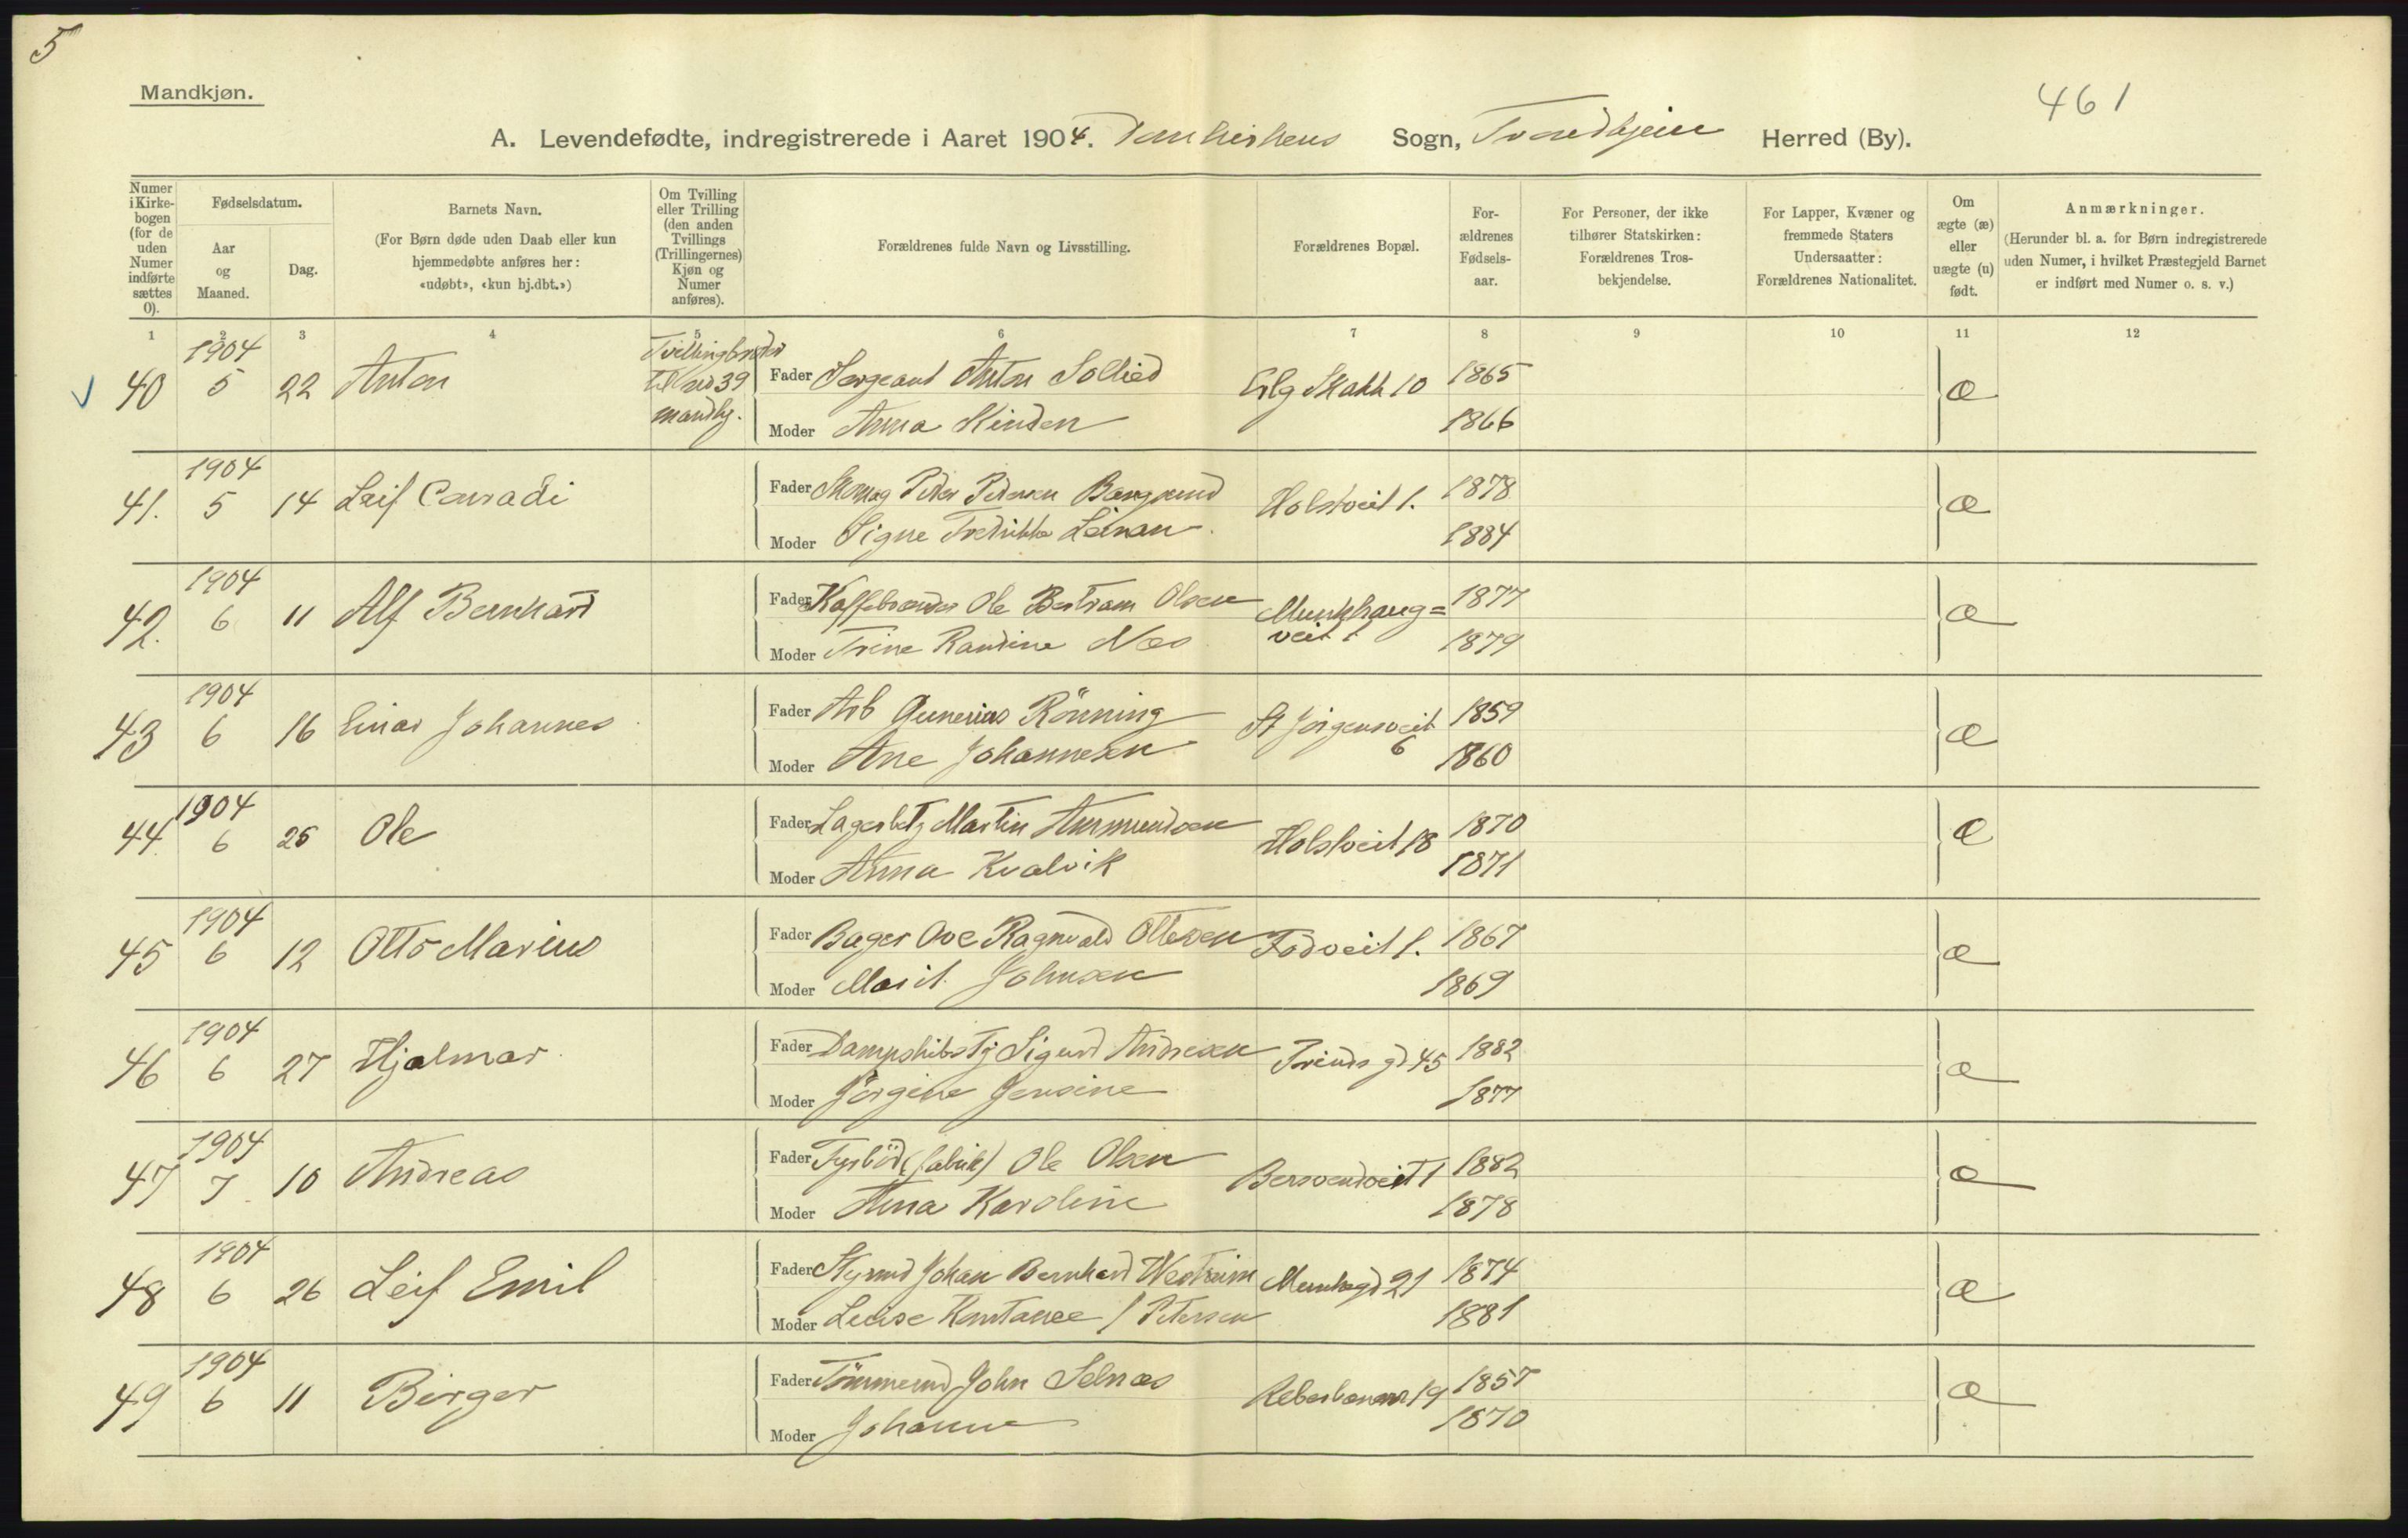 5
Mandkjøn.
461
A. Levendefødte, indregistrerede i Aaret 1904. Domkirkens Sogn, Trondhjem Herred (By).
Numer i Kirkebogen (for de uden Numer indførte sættes 0).
Fødselsdatum.
Aar og Maaned.
Dag.
Barnets Navn.
(For Børn døde uden Daab eller kun hjemmedøbte anføres her: «udøbt», «kun hj.dbt.»)
Om Tvilling eller Trilling (den anden Tvillings (Trillingernes) Kjøn og Numer anføres).
Forældrenes fulde Navn og Livsstilling.
Forældrenes Bopæl.
Forældrenes Fødselsaar.
For Personer, der ikke tilhører Statskirken: Forældrenes Trosbekjendelse.
For Lapper, Kvæner og fremmede Staters Undersaatter: Forældrenes Nationalitet.
Om ægte (æ) eller uægte (u) født.
Anmærkninger.
(Herunder bl. a. for Børn indregistrerede uden Numer, i hvilket Præstegjeld Barnet er indført med Numer o. s. v.)
1 2 3 4 5 6 7 8 9 10 11 12
40 1904 5 22 Anton Tvillingbroder til no 39 mandkj. Fader Sergeant Anton Sollied Erlg Skakk 10 1865 æ
Moder Anna Skinden 1866
41. 1904 5 14 Leif Conradi Fader Skomag Peder Pedersen Bangsund Holstveit 1. 1878 æ
Moder Signe Fredrikke Leiran 1884
42. 1904 6 11 Alf Bernhard Fader Kaffebrænder Ole Bertram Olsen Munkhaug= veit 1 1877 æ
Moder Trine Randine Næs 1879
43 1904 6 16 Einar Johannes Fader Arb Gunerius Rönning St Jörgensveit 6 1859 æ
Moder Ane Johannesen 1860
44 1904 6 26 Ole Fader Lagerbetj Martin Aasmundsen Holstveit 18 1870 æ
Moder Anna Kvalvik 1871
45 1904 6 12 Otto Marius Fader Bager Ove Ragnvald Ottesen Fodveit 1. 1867 æ
Moder Marit Johnsen 1869
46 1904 6 27 Hjalmar Fader Dampskibstj Sigurd Andresen Prinds gd 45 1882 æ
Moder Jörgine Jensine 1877
47 1904 7 10 Andreas Fader (fabrik) Ole Olsen Bersvendveit 1 1882 æ
Moder Anna Karoline 1878
48 1904 6 26 Leif Emil Fader Styrmd Johan Bernhard Westreim Munkegd 21 1874 æ
Moder Louise Konstance f Petersen 1881
49 1904 6 11 Birger Fader Tömmermd John Selnæs Reberbanen 19 1857 æ
Moder Johanne 1870